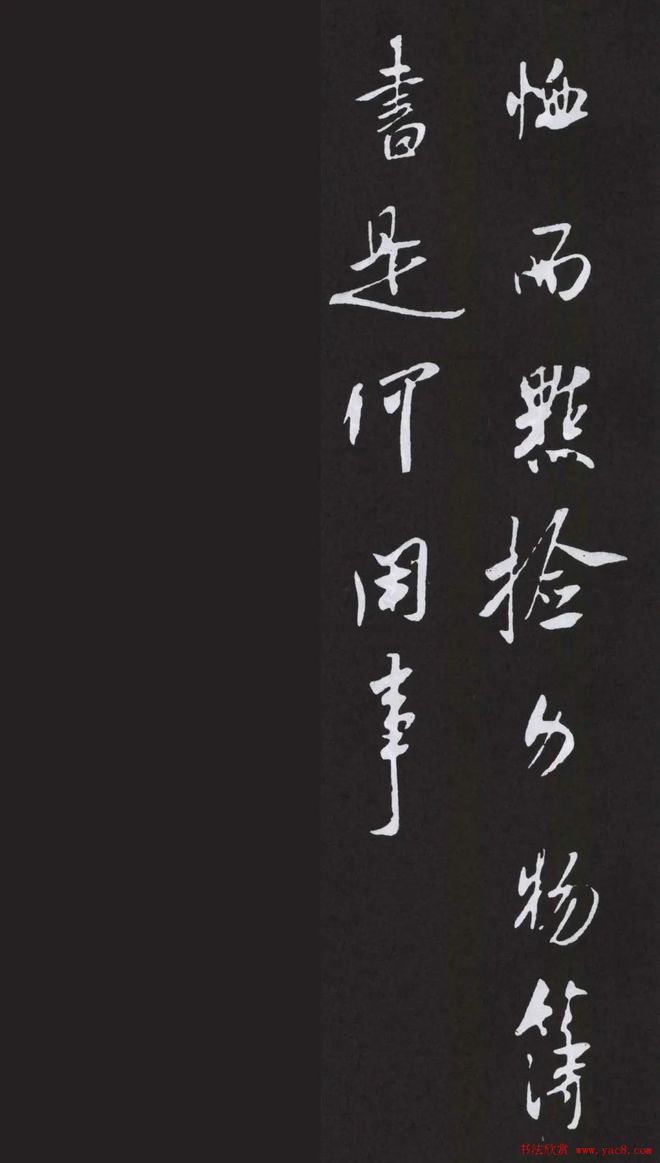 恤而點撿物簿
書是何用事
书法欣赏 www.yac8.com